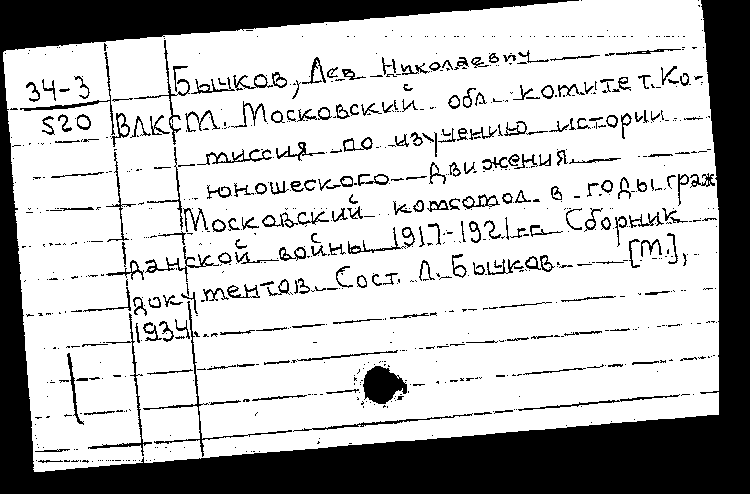 34-3
520
Бычков, Лев Николаевич
ВЛКСМ. Московский обл. комитет. Ко-
миссия по изучению истории
юношеского движения.
Московский комсомол в годы граж
данской войны 1917-1921 гг. Сборник
документов. Сост. Л. Бычков. [М.],
1934.